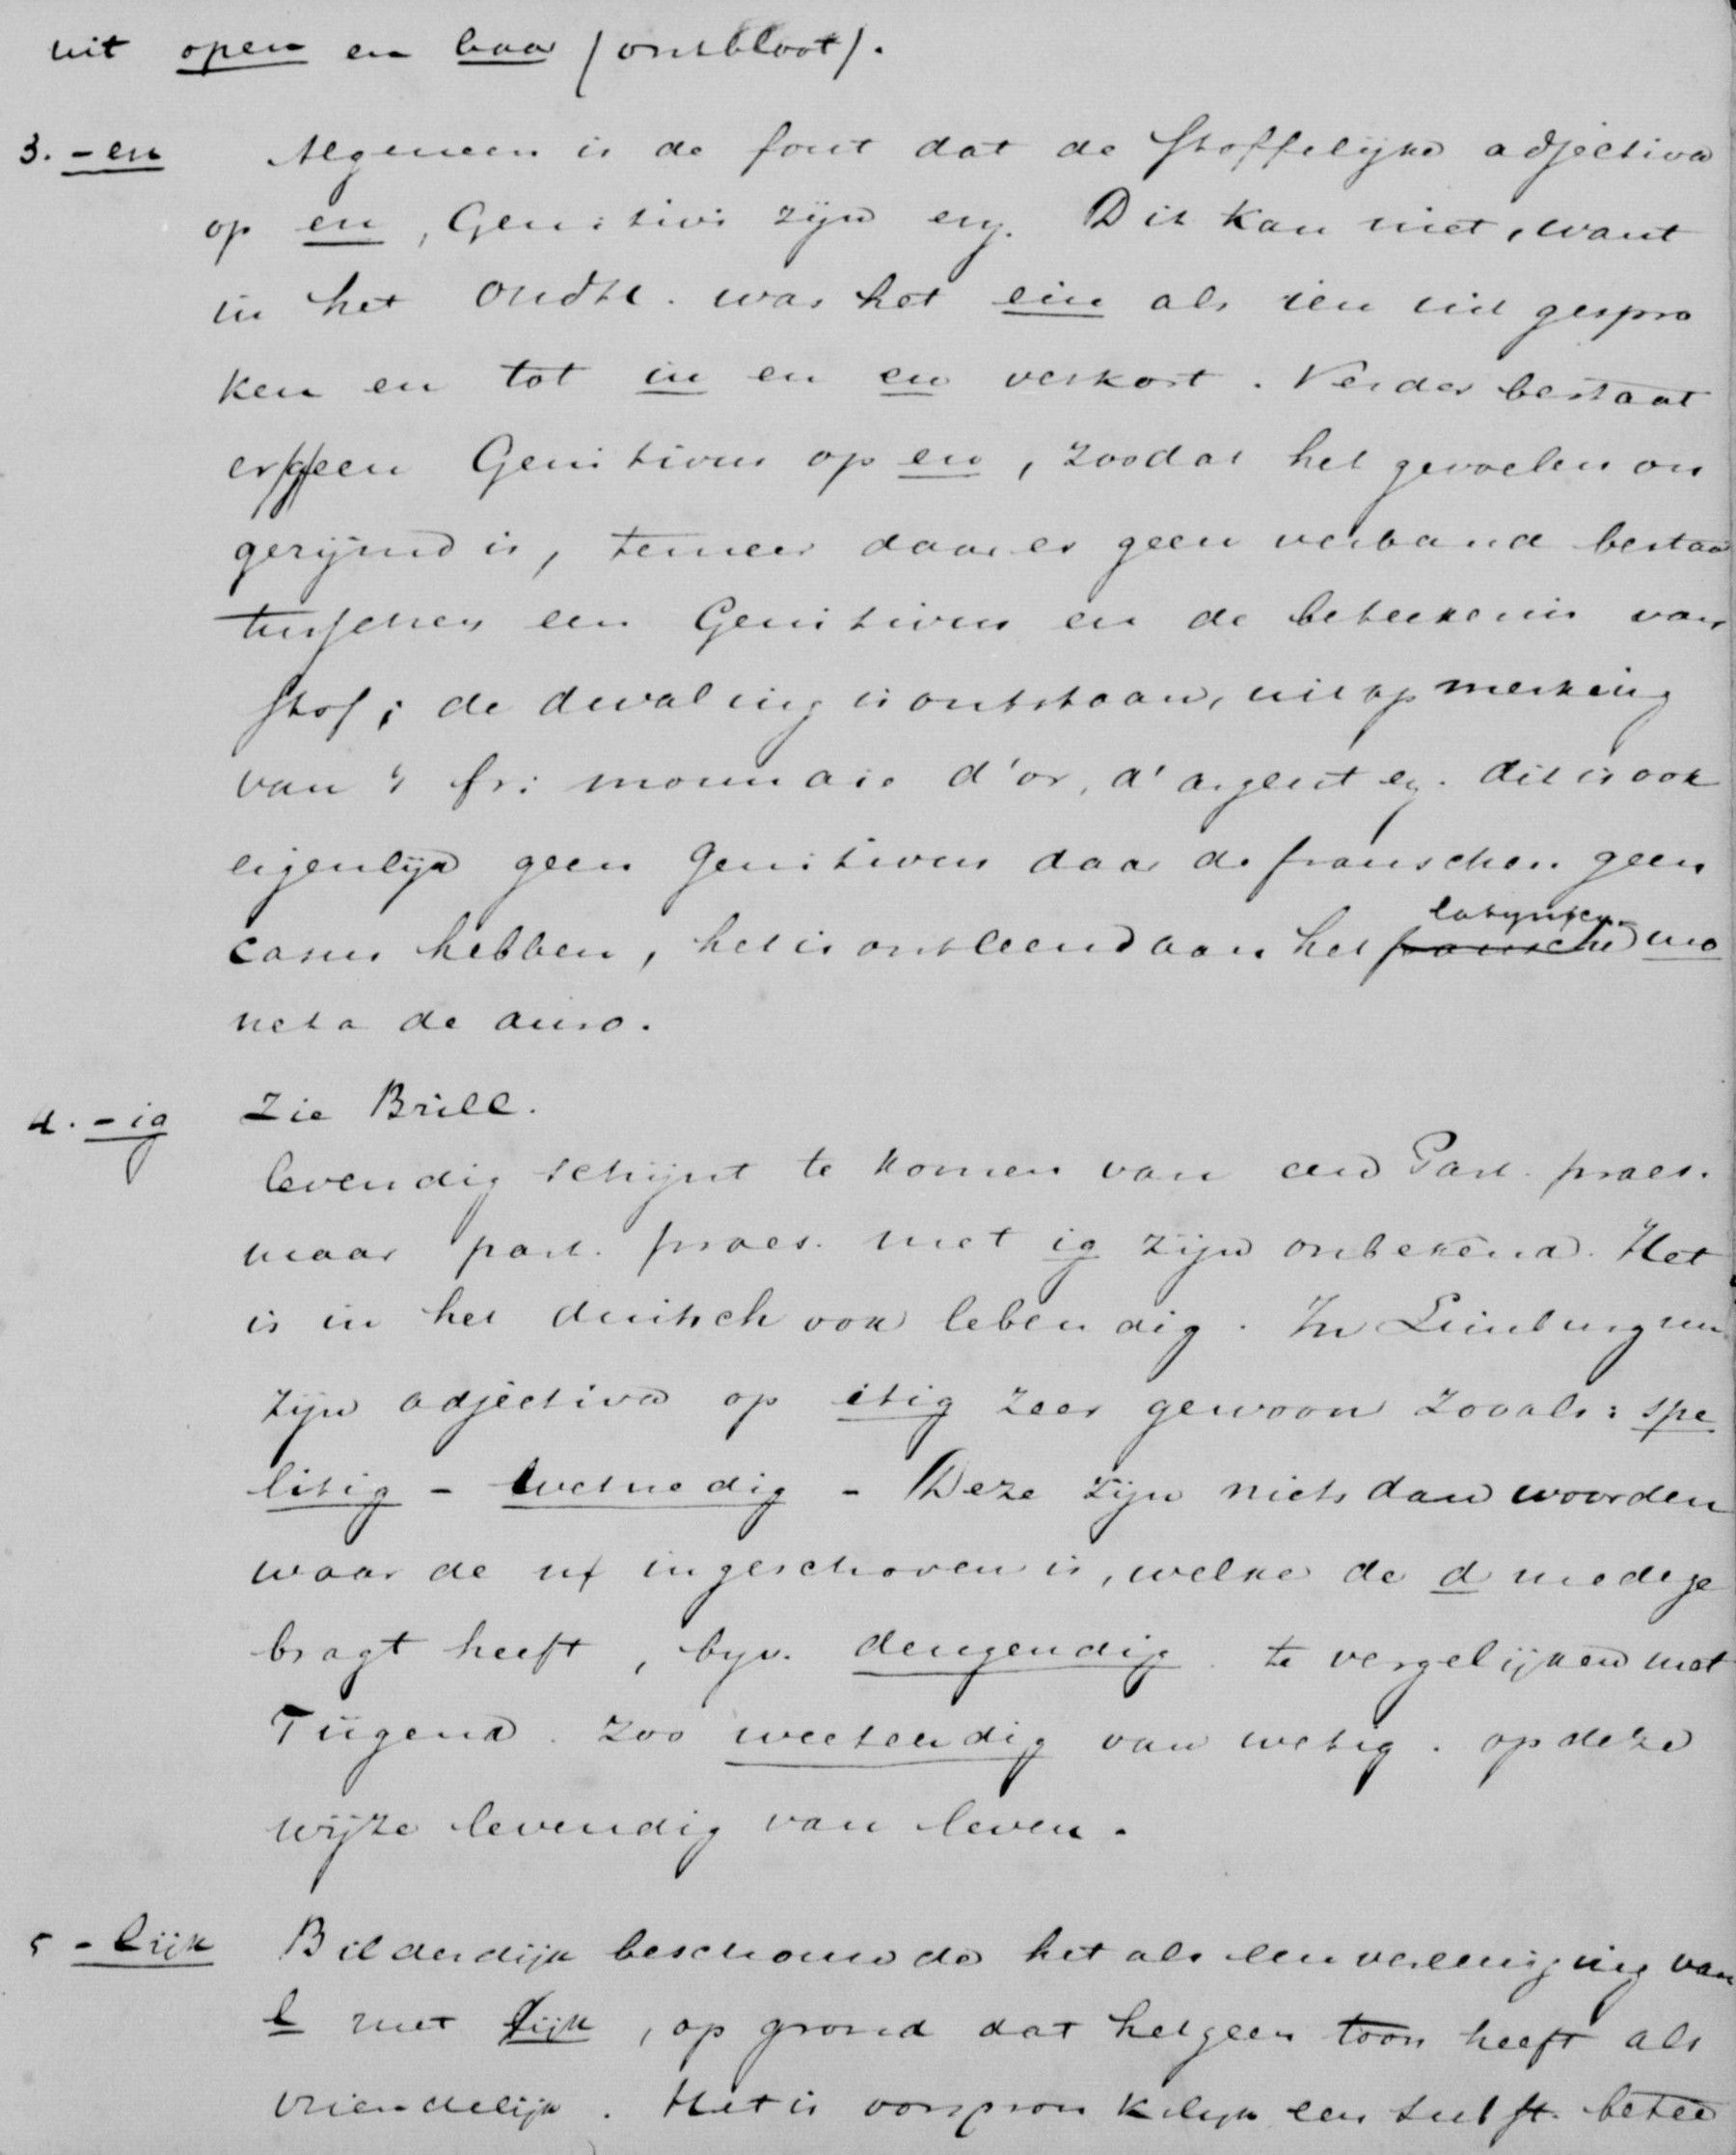 uit open en baar (ontbloot).
3. -en Algemeen is de fout dat de stoffelijke adjectiva
op en, Genitivi zijn enz. Dit kan niet, want
in het Oudhd. was het ein als ien uit gespro
ken en tot in en en verkort. Verder bestaat
er geen Genitivus op en, zoodat het gevoelen on
gerijmd is, temeer daar er geen verband bestaa
tusschen een Genitivus en de beteekenis van
stof; de dwaling is ontstaan, uit opmerking
van 't fr: monnaie d'or, d'argent enz. dit is ook
eigenlijk geen Genitivus daar de franschen geen
casus hebben, het is ontleend aan het fransche latynsch mo
neta de auro.
4. -ig Zie Brill.
levendig schijnt te komen van een Part. praes.
maar part. praes. met ig zijn onbekend. Het
is in het duitsch ook lebendig. In Limburg
zijn adjectiva op etig zeer gewoon zooals: spe
litig - - Deze zijn niets dan woorden
waar de n ingeschoven is, welke de d medege
bragt heeft, byv. deugendig te vergelijken met
Tugend. Zoo weetendig van wetig. op deze
wijze levendig van leven.
5 -lijk Bilderdijk beschouwde het als een vereeniging van
l met lijk, op grond dat het geen toon heeft als
vriendelijk. Het is oorspronkelijk een subst. betee